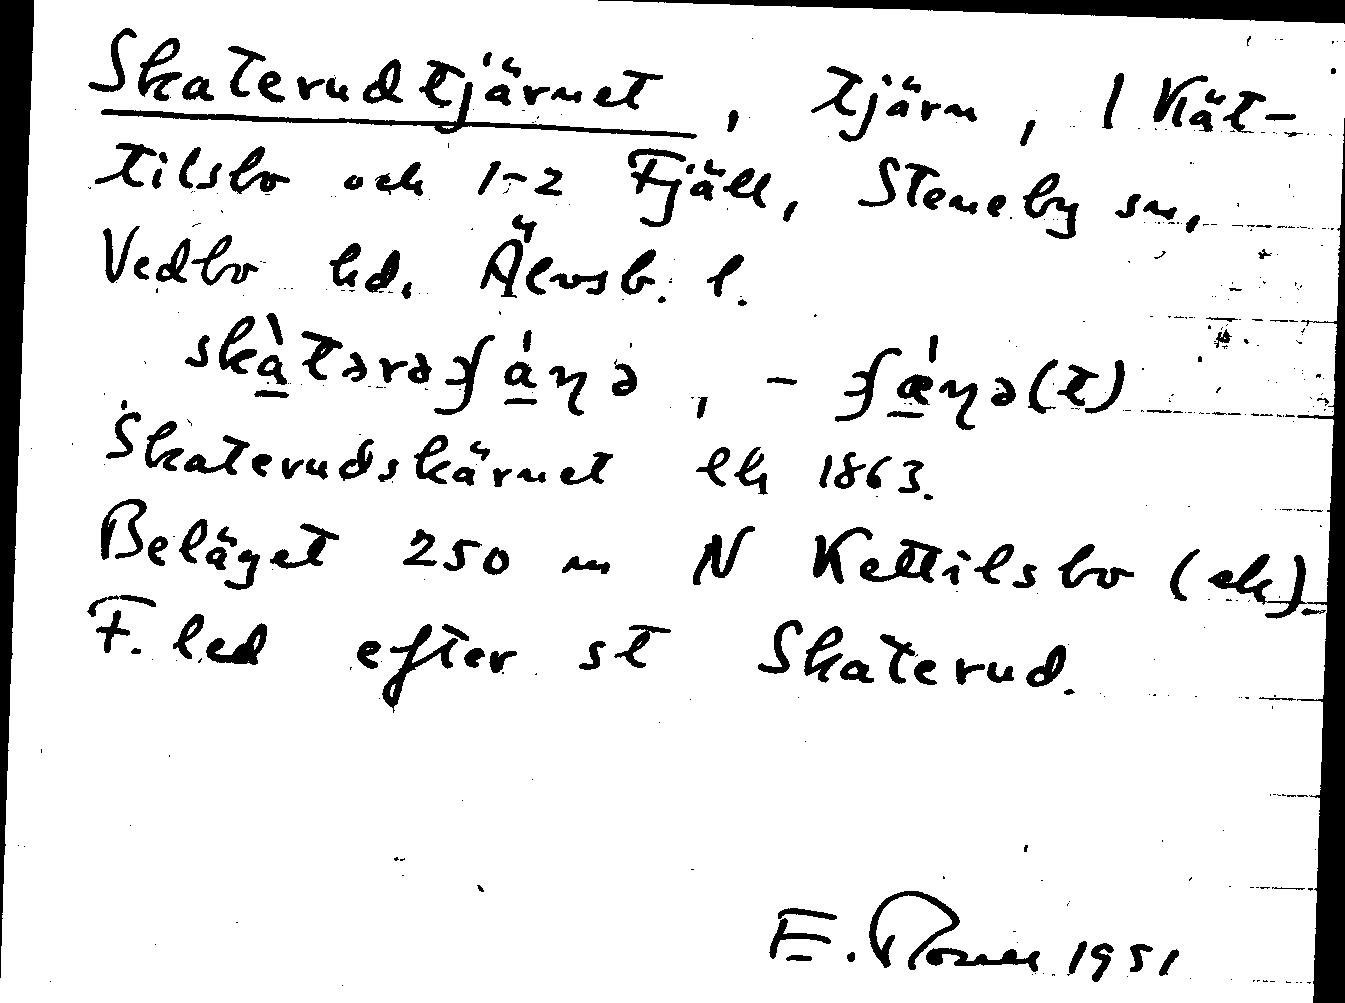 Skaterudtjärnet, tjärn, 1 Kät-
tilsbo och 1-2 Fjäll, Steneby sn,
Vedbo hd. Älvsb. l.
skàtərəʒʃánə, -ʒʃǽnə(t)
Skaterudskärnet ek 1863.
Beläget 250 m N Kettilsbo (ek).
F. led efter st Skaterud.
E. 1951